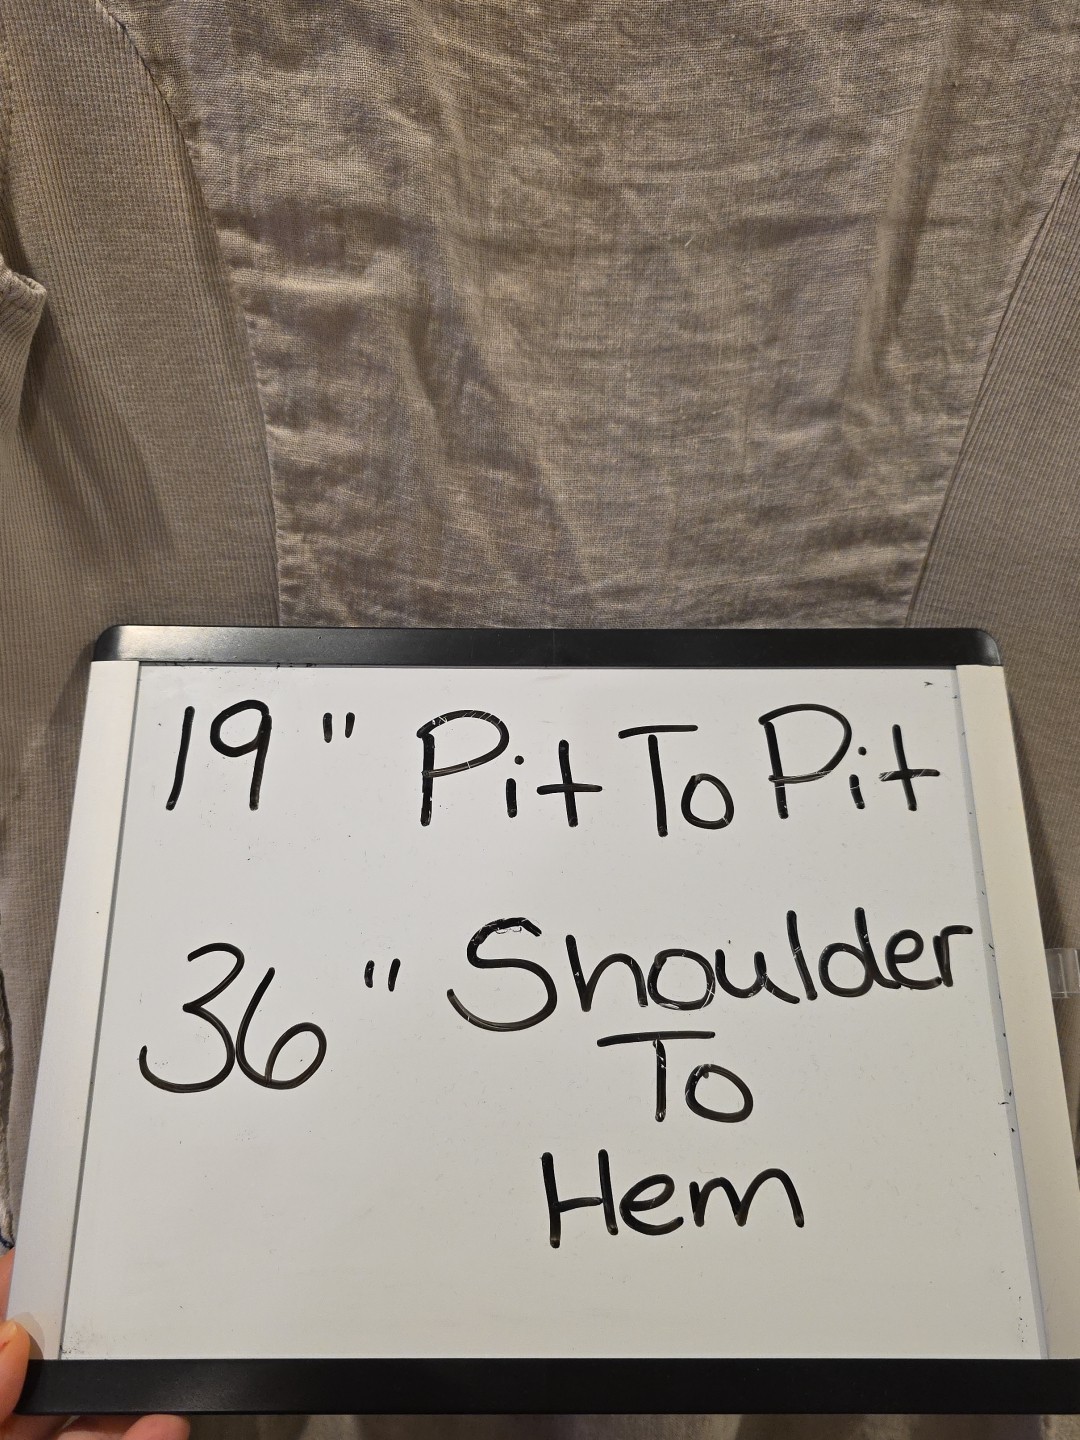 19" Pit To Pit
36" Shoulder
To
Hem